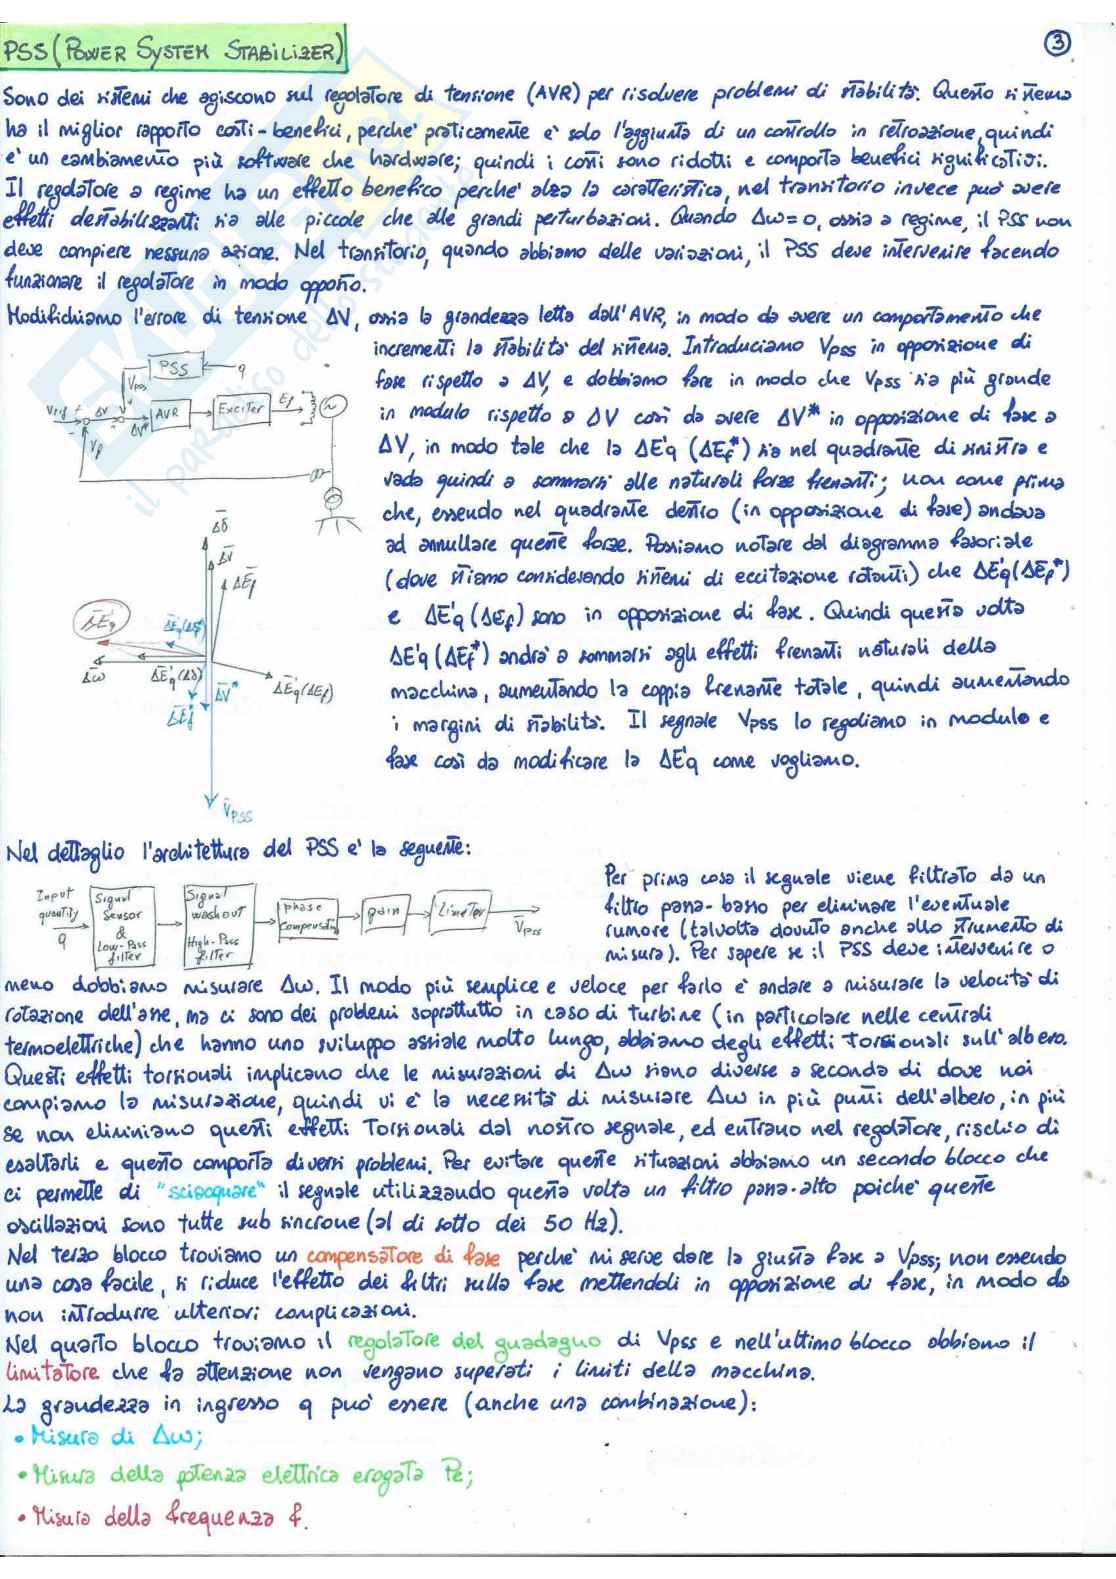 PSS (POWER SYSTEM STABILIZER)
3
Sono dei sistemi che agiscono sul regolatore di tensione (AVR) per risolvere problemi di stabilità. Questo sistema
ha il miglior rapporto costi-benefici, perche' praticamente e' solo l'aggiunta di un controllo in retroazione, quindi
e' un cambiamento più software che hardware; quindi i costi sono ridotti e comporta benefici significativi.
Il regolatore a regime ha un effetto benefico perche' alza la caratteristica, nel transitorio invece può avere
effetti destabilizzanti sia alle piccole che alle grandi perturbazioni. Quando Δω=0, ossia a regime, il PSS non
deve compiere nessuna azione. Nel transitorio, quando abbiamo delle variazioni, il PSS deve intervenire facendo
funzionare il regolatore in modo opposto.
Modifichiamo l'errore di tensione ΔV, ossia la grandezza letta dall'AVR, in modo da avere un comportamento che
incrementi la stabilità del sistema. Introduciamo Vpss in opposizione di
fase rispetto a ΔV, e dobbiamo fare in modo che Vpss sia più grande
in modulo rispetto a ΔV così da avere ΔV* in opposizione di fase a
ΔV, in modo tale che la ΔE'q (ΔEf*) sia nel quadrante di sinistra e
vada quindi a sommarsi alle naturali forze frenanti; non come prima
che, essendo nel quadrante destro (in opposizione di fase) andava
ad annullare queste forze. Possiamo notare dal diagramma fasoriale
(dove stiamo considerando sistemi di eccitazione rotanti) che ΔE'q(ΔEf*)
e ΔE'q (ΔEf) sono in opposizione di fase. Quindi questa volta
ΔE'q (ΔEf*) andrà a sommarsi agli effetti frenanti naturali della
macchina, aumentando la coppia frenante totale, quindi aumentando
i margini di stabilità. Il segnale Vpss lo regoliamo in modulo e
fase così da modificare la ΔE'q come vogliamo.
PSS
q
Vpss
Vrif + ΔV +
ΔV*
AVR
Exciter
Ef
Vf
Δδ
ΔV
ΔEf
ΔE'q
ΔE'q(ΔEf*)
Δω
ΔE'q(Δδ)
ΔV*
ΔE'q(ΔEf)
ΔEf*
VPSS
Nel dettaglio l'architettura del PSS e' la seguente:
Input
quantity
q
Signal
Sensor
&
Low-Pass
filter
Signal
washout
High-Pass
filter
phase
compensator
gain
Limiter
Vpss
Per prima cosa il segnale viene filtrato da un
filtro passa-basso per eliminare l'eventuale
rumore (talvolta dovuto anche allo strumento di
misura). Per sapere se il PSS deve intervenire o
meno dobbiamo misurare Δω. Il modo più semplice e veloce per farlo e' andare a misurare la velocità di
rotazione dell'asse, ma ci sono dei problemi soprattutto in caso di turbine (in particolare nelle centrali
termoelettriche) che hanno uno sviluppo assiale molto lungo, abbiamo degli effetti torsionali sull'albero.
Questi effetti torsionali implicano che le misurazioni di Δω siano diverse a seconda di dove noi
compiamo la misurazione, quindi vi e' la necessità di misurare Δω in più punti dell'albero, in più
se non eliminiamo questi effetti torsionali dal nostro segnale, ed entrano nel regolatore, rischio di
esaltarli e questo comporta diversi problemi. Per evitare queste situazioni abbiamo un secondo blocco che
ci permette di "sciacquare" il segnale utilizzando questa volta un filtro passa-alto poiche' queste
oscillazioni sono tutte sub sincrone (al di sotto dei 50 Hz).
Nel terzo blocco troviamo un compensatore di fase perche' mi serve dare la giusta fase a Vpss; non essendo
una cosa facile, si riduce l'effetto dei filtri sulla fase mettendoli in opposizione di fase, in modo da
non introdurre ulteriori complicazioni.
Nel quarto blocco troviamo il regolatore del guadagno di Vpss e nell'ultimo blocco abbiamo il
limitatore che fa attenzione non vengano superati i limiti della macchina.
La grandezza in ingresso q può essere (anche una combinazione):
• Misura di Δω;
• Misura della potenza elettrica erogata Pe;
• Misura della frequenza f.